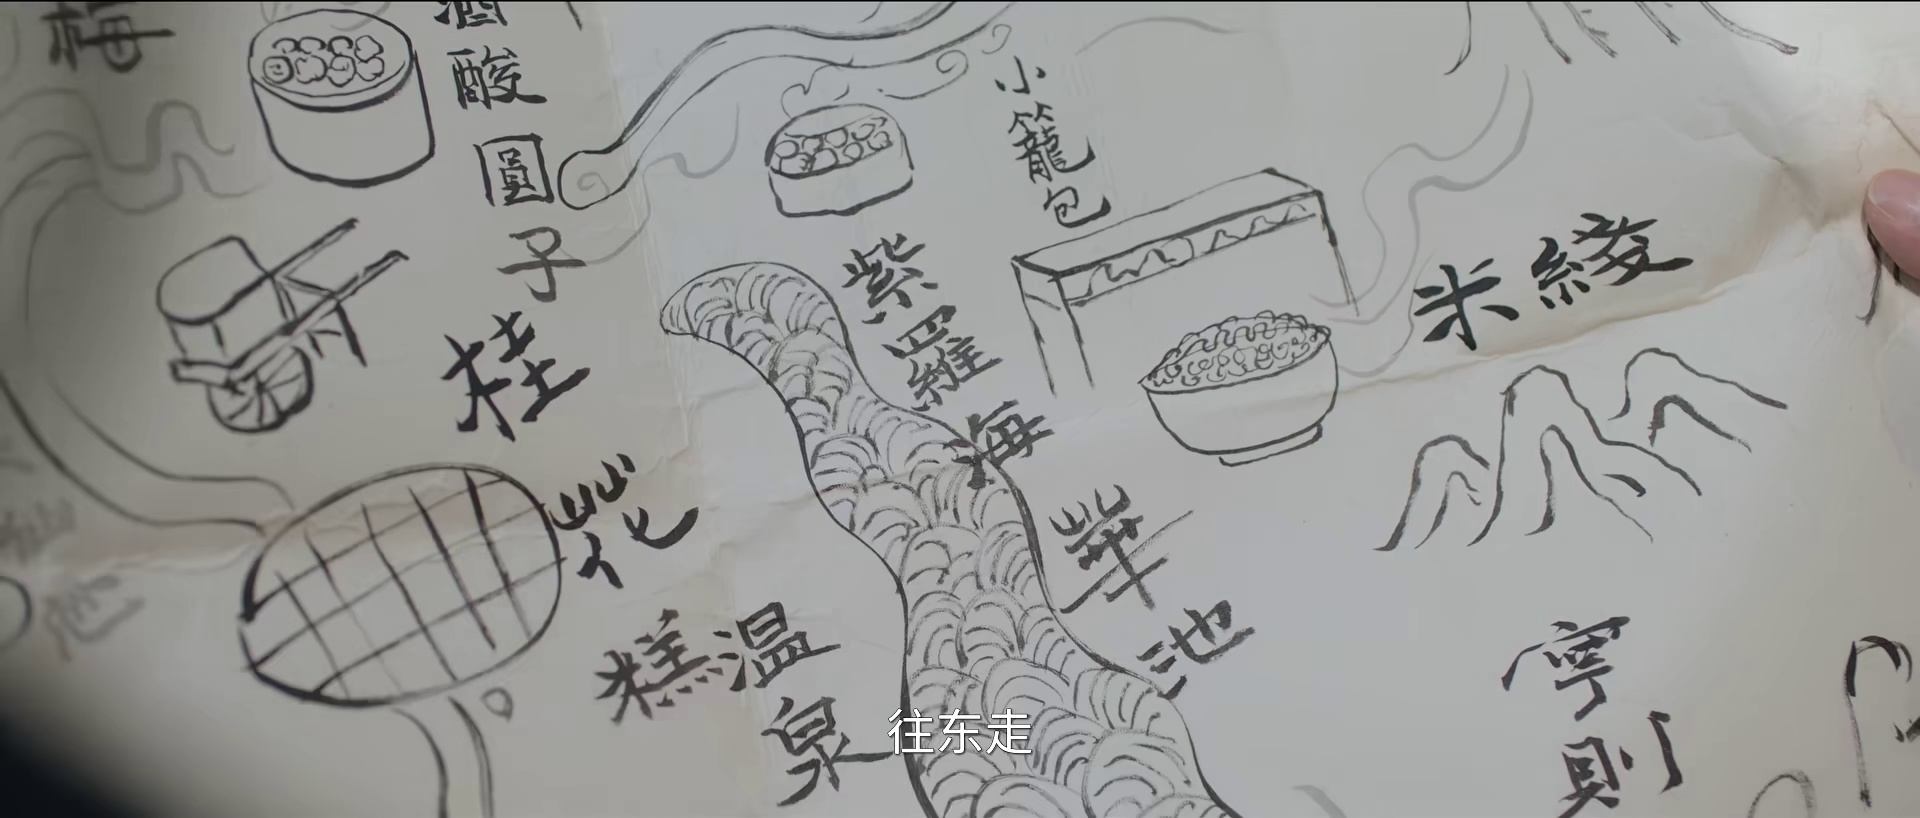 梅
酒酸圓子
小籠包
紫羅海
華池
米綫
桂花糕
温泉
寧則
往东走